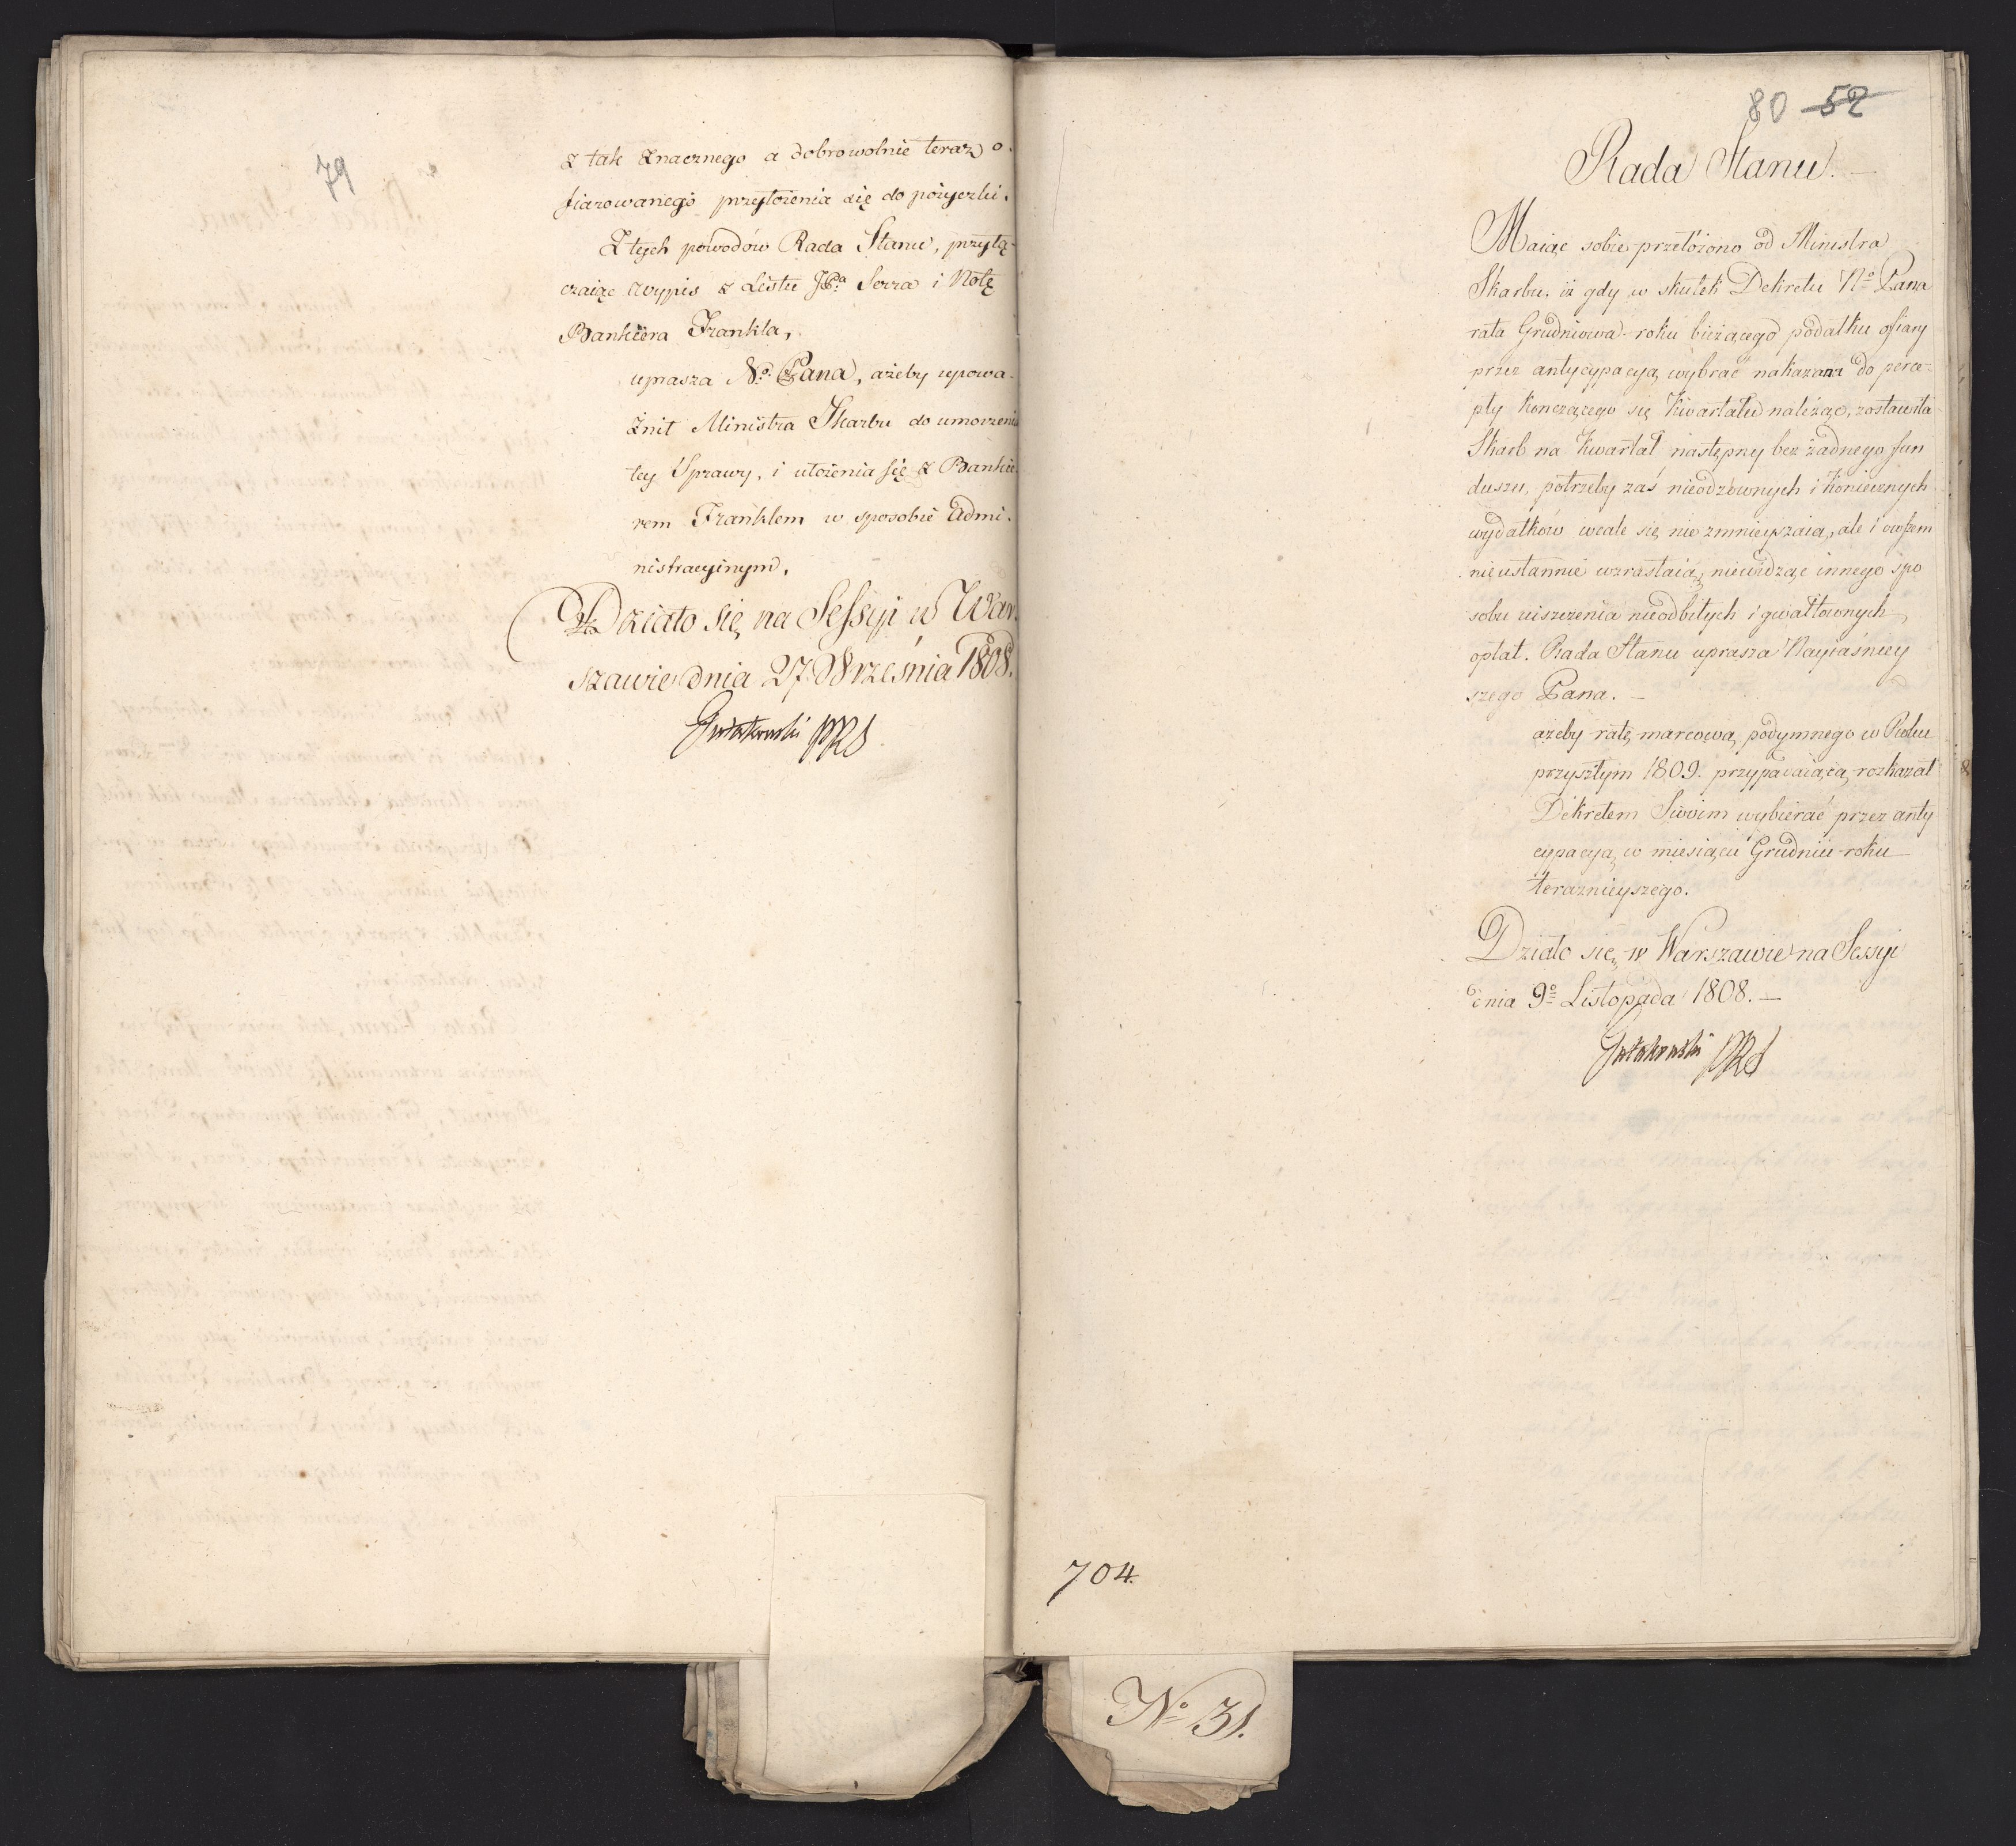 79
z tak znacznego a dobrowolnie teraz o-
fiarowanego przyłożenia się do pożyczki.
Z tych powodów Rada Stanu, przyłą-
czaiąc wypis z Listu JP.ª Serra i Notę
Bankiera Frankla,
uprasza N.º Pana, ażeby upowa-
żnił Ministra Skarbu do umorzenia
tey Sprawy, i ułożenia się z Bankie-
rem Franklem w sposobie Admi-
nistracyinym.
Działo się na Sessyi w War-
szawie dnia 27. Września 1808.
Gutakowski PRS
80 52
Rada Stanu.
Maiąc sobie przełożono od Ministra
Skarbu, iż gdy w skutek Dekretu Nº Pana
rata Grudniowa roku bieżącego podatku ofiary
przez antycypacyą wybrać nakazana do perce-
pty kończącego się Kwartału należąc, zostawiła
Skarb na Kwartał następny bez żadnego fun
duszu, potrzeby zaś nieodzownych i koniecznych
wydatków wcale się nie zmnieyszaią, ale i owszem
nieustannie wzrastaią, niewidząc innego spo
sobu uiszczenia nieodbitych i gwałtownych
opłat. Rada Stanu uprasza Nayiaśniey
szego Pana. —
ażeby ratę marcową podymnego w Roku
przyszłym 1809. przypadaiącą rozkazał
Dekretem Swoim wybierać przez anty
cypacyą w miesiącu Grudniu roku
teraznieyszego.
Działo się w Warszawie na Sessyi
dnia 9º Listopada 1808. —
Gutakowski PRS
704.
Nº 31.